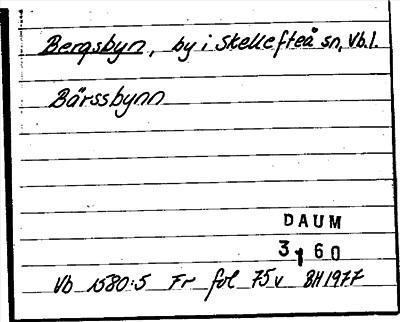 Bergsbyn, by i Skellefteå sn, Vb.l.
Bärssbynn
DAUM
3160
Vb 1580:5 Fr fol 75v BH1977